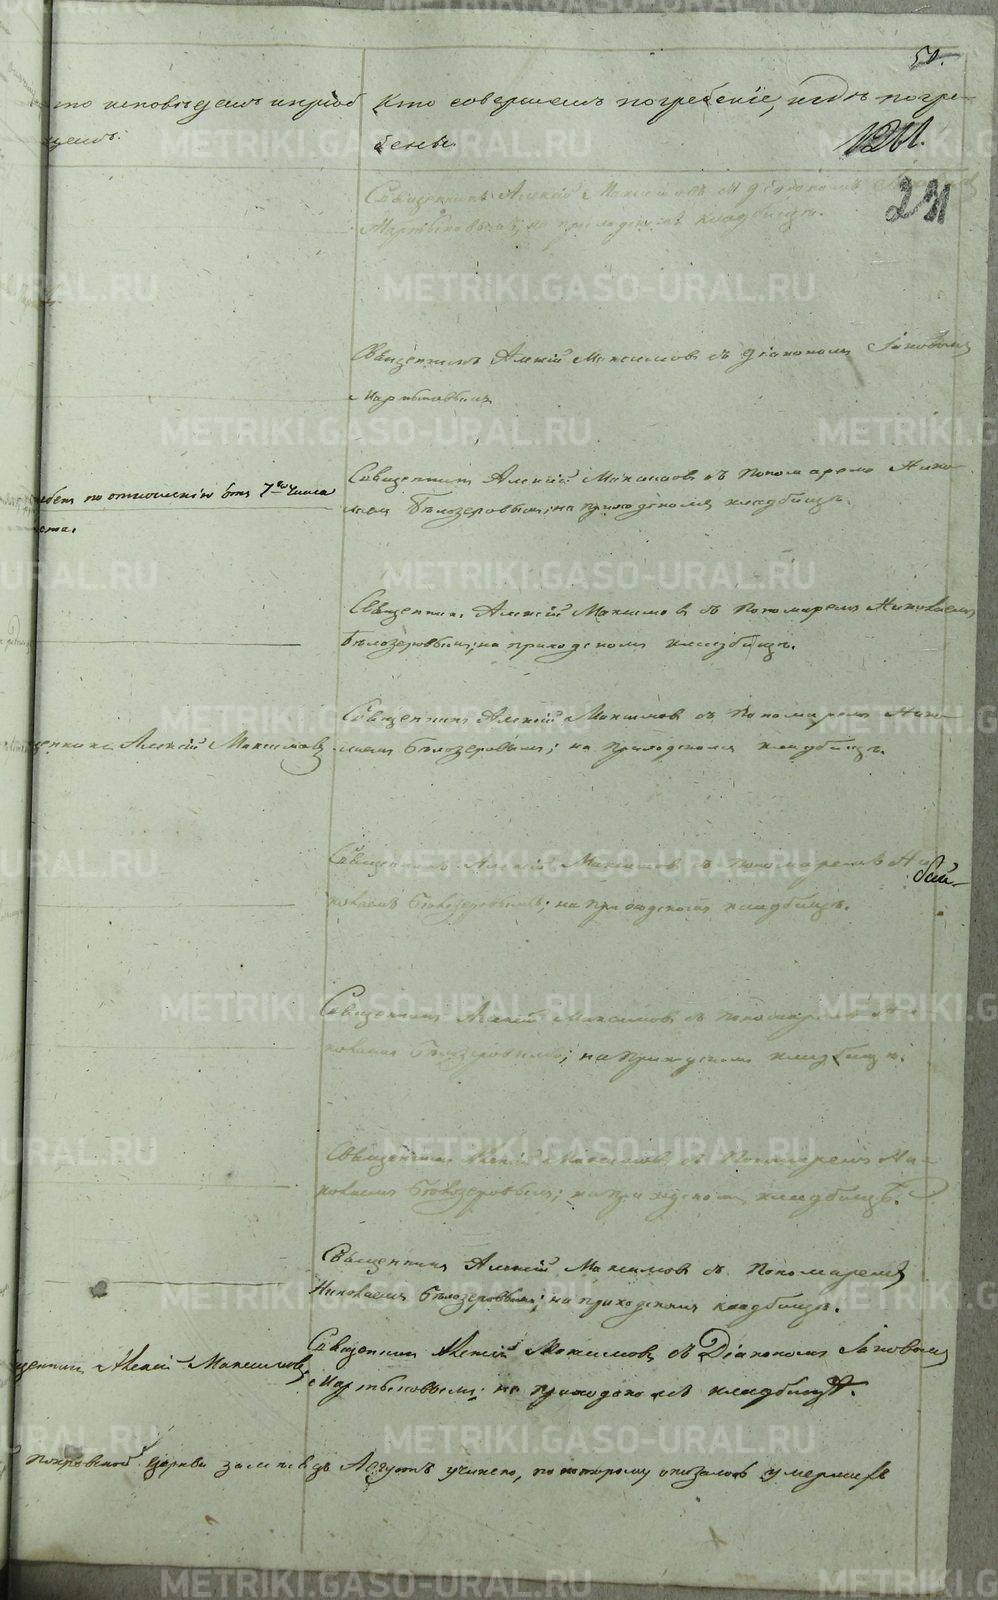 50.
то исповѣдалъ и приоб
щалъ.
Кто совершалъ погребеніе, и гдѣ погре-
бены.
241
Священникъ Алексій Максимовъ съ діакономъ
Мартыновымъ; на приходскомъ кладбищѣ.
Священникъ Алексій Максимовъ съ діакономъ Іаковомъ
Мартыновымъ
по отношенію отъ 7го числа
Священникъ Алексій Максимовъ съ Пономаремъ Нико-
лаемъ Бѣлозеровымъ; на приходскомъ кладбищѣ.
Священникъ Алексій Максимовъ съ Пономаремъ Николаемъ
Бѣлозеровымъ; на приходскомъ кладбищѣ.
щенникъ Алексій Максимовъ
Священникъ Алексій Максимовъ съ Пономаремъ Нико-
лаемъ Бѣлозеровымъ; на приходскомъ кладбищѣ.
Священникъ Алексій Максимовъ съ пономаремъ Ни-
колаемъ Бѣлозеровымъ; на приходскомъ кладбищѣ.
Священникъ Алексій Максимовъ съ пономаремъ Ни-
колаемъ Бѣлозеровымъ; на приходскомъ кладбищѣ.
Священникъ Алексій Максимовъ съ Пономаремъ Ни-
колаемъ Бѣлозеровымъ; на приходскомъ кладбищѣ.
Священникъ Алексій Максимовъ съ Пономаремъ
Николаемъ Бѣлозеровымъ; на приходскомъ кладбищѣ.
щенникъ Алексій Максимовъ
Священникъ Алексій Максимовъ съ Діакономъ Іаковомъ
Мартыновымъ; на приходскомъ кладбищѣ.
Покровской церкви за мѣсяцъ Августъ учинено, по которому оказалось умершихъ
METRIKI.GASO-URAL.RU